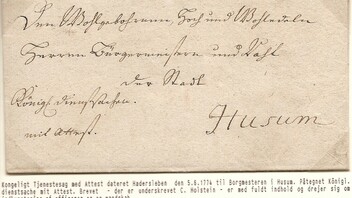 Den Wohlgebohrnen Hoch und Wohledeln
Herren Bürgermeister und Raht
der Stadt
Königl. dienstsachen.
Husum
mit Attest.
Kongeligt Tjenestesag med Attest dateret Hadersleben den 5.8.1774 til Borgmesteren i Husum. Påtegnet Königl.
dienstsache mit Attest. Brevet - der er underskrevet C. Holstein - er med fuldt indhold og drejer sig om